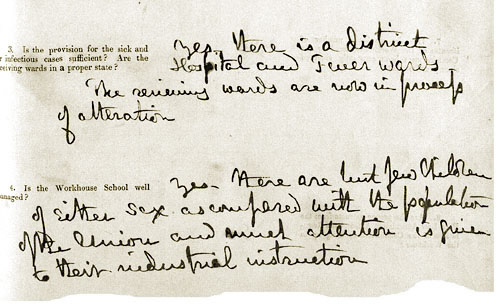 3. Is the provision for the sick and
infectious cases sufficient? Are the
receiving wards in a proper state?
Yes, there is a district
Hospital and Fever wards
The receiving wards are now in process
of alteration
4. Is the Workhouse School well
managed?
Yes. There are but few Children
of either Sex as compared with the population
of the Union and much attention is given
to their industrial instruction